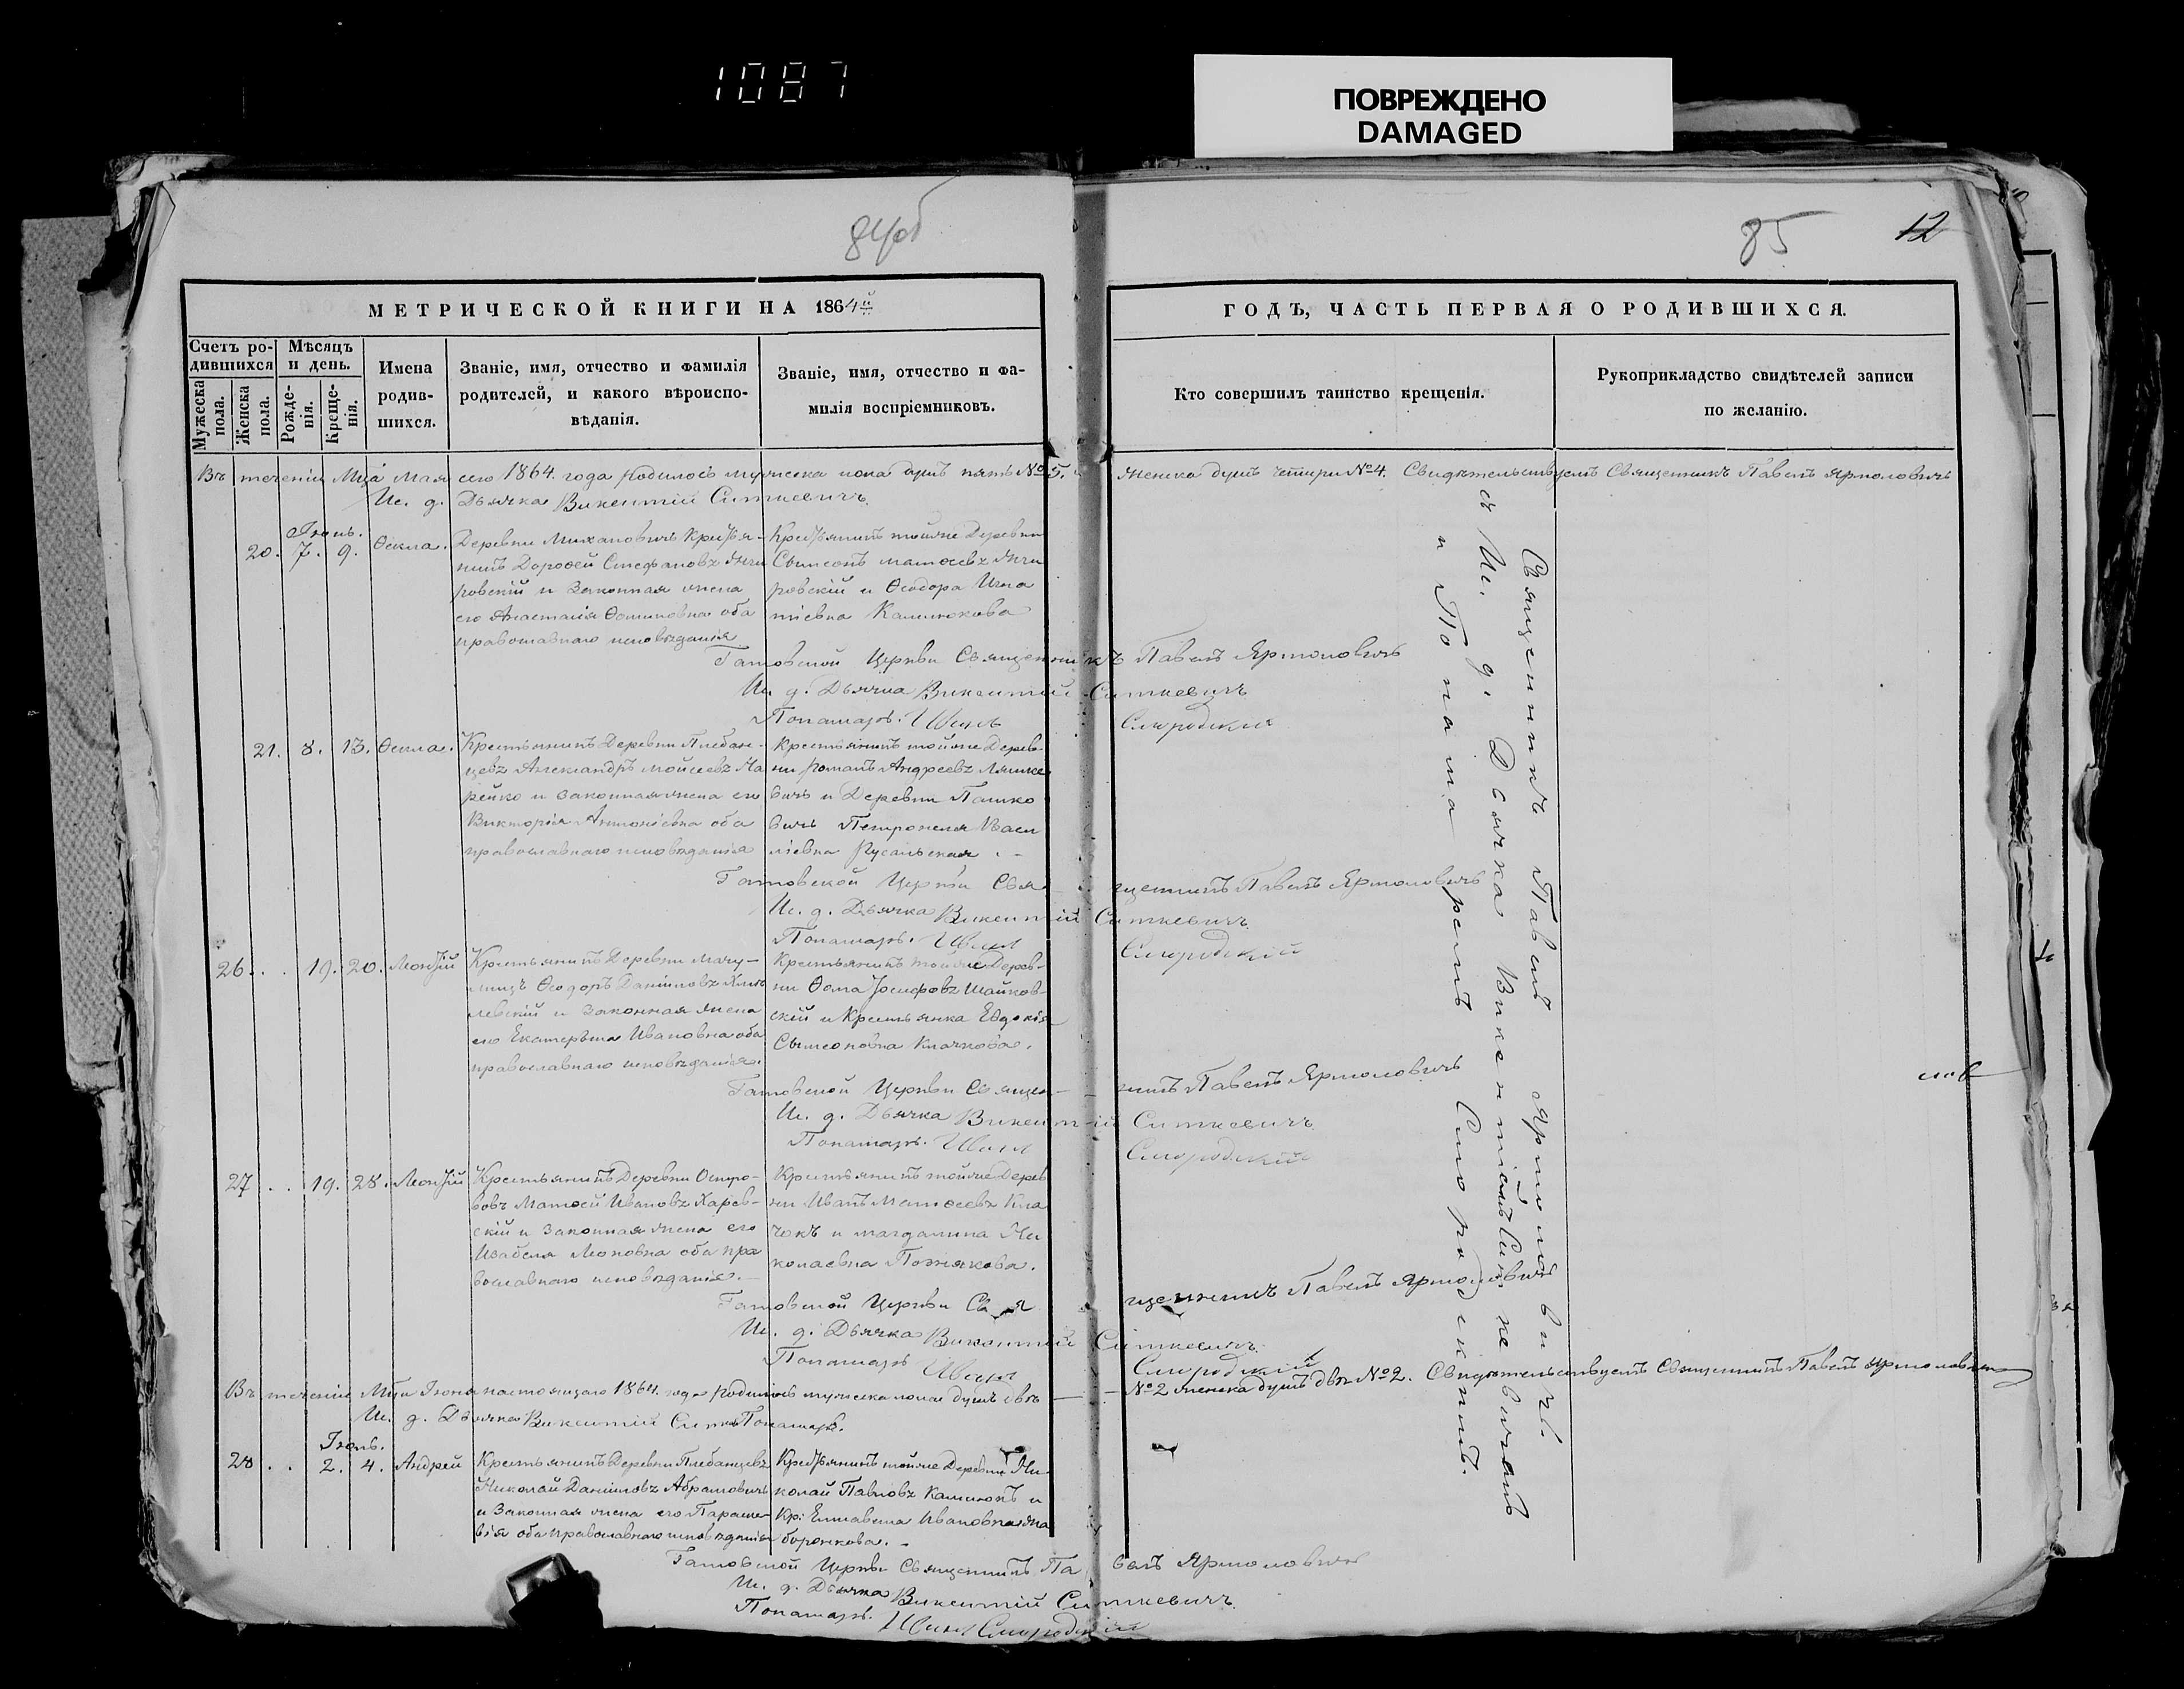 1087
ПОВРЕЖДЕНО
DAMAGED
84об
85
12
МЕТРИЧЕСКОЙ КНИГИ НА 1864й
ГОДЪ, ЧАСТЬ ПЕРВАЯ О РОДИВШИХСЯ.
Счетъ ро-
дившихся
Мужеска
пола.
Женска
пола.
Мѣсяцъ
и день.
Рожде-
нія.
Креще-
нія.
Имена
родив-
шихся.
Званіе, имя, отчество и фамилія
родителей, и какого вѣроиспо-
вѣданія.
Званіе, имя, отчество и фа-
милія воспріемниковъ.
Кто совершилъ таинство крещенія.
Рукоприкладство свидѣтелей записи
по желанію.
Въ теченіи Мца Мая сего 1864 года родилось мужеска пола душъ пять №5. и
женска душъ четыри №4. Свидѣтельствуемъ Священникъ Павелъ Ярмоловичъ
Ис. д. Дьячка Викентій Ситкевичъ.
Іюнь.
20. 7. 9. Ѳекла.
Деревни Михановичъ Кресья-
нинъ Дороѳей Стефановъ Янчи
ровскій и Законная жена
его Анастасія Ѳоминовна оба
православнаго исповѣданія
Кресьянинъ тойже Деревни
Сымеонъ матѳеевъ Янчи
ровскій и Ѳеодора Игна
тіевна Калинокова
Гатовской Церкви Священникъ Павелъ Ярмоловичъ
Ис. д. Дьячка Викентій Ситкевичъ
Понамарь. Иванъ Смородскій
21. 8. 13. Ѳекла.
Крестьянинъ Деревни Плебан-
цевъ Александръ мойсеевъ На
рейко и Законная жена его
Викторія Антоніевна оба
православнаго исповѣданія
Крестьянинъ тойже Дерев-
ни Романъ Андреевъ Ляшке
вичъ и Деревни Пашко
вичъ Петронеля Васи
ліевна Русальская.
Гатовской Церкви Священникъ Павелъ Ярмоловичъ
Ис. д. Дьячка Викентій Ситкевичъ
Понамарь. Иванъ Смородскій
26. 19. 20. Леонтій
Крестьянинъ Деревни Мачу-
лищъ Ѳеодоръ Даниловъ
левскій и Законная жена
его Екатерина Ивановна оба
православнаго исповѣданія.
Крестьянинъ тойже Дерев-
ни Ѳома Іосифовъ Шайков-
скій и Крестьянка Евдокія
Сымеоновна Клачкова.
Гатовской Церкви Священникъ Павелъ Ярмоловичъ
Ис. д. Дьячка Викентій Ситкевичъ
Понамарь. Иванъ Смородскій
27 19. 28. Леонтій
Крестьянинъ Деревни
Матѳей Ивановъ Харев-
скій и Законная жена его
Изабеля Леоновна оба пра
вославнаго исповѣданія.
Крестьянинъ тойже Дерев
ни Иванъ Матѳеевъ Кла
чокъ и магдалина Ни
колаевна Познякова.
Гатовской Церкви Священникъ Павелъ Ярмоловичъ
Ис. д. Дьячка Викентій Ситкевичъ.
Понамарь Иванъ Смородскій
Въ теченіи Мца Іюня настоящаго 1864. года родилось мужеска пола душъ двѣ
№2 женска душъ двѣ №2. Свидѣтельствуемъ Священникъ Павелъ Ярмоловичъ
Ис. д. Дьячка Викентій Понамарь.
Іюль.
28 2. 4. Андрей
Крестьянинъ Деревни Плебанцевъ
Николай Даниловъ Абрамовичъ
и Законная жена его Параске-
вія оба православнаго исповѣданія
Кресьянинъ тойже Деревни Ни-
колай Павловъ Калинокъ и
Кр: Елисавета Ивановна
боронкова.
Гатовской Церкви Священникъ Павелъ Ярмоловичъ
Ис. д. Дьячка Викентій Ситкевичъ.
Понамарь. Иванъ Смородскій
Священникъ Павелъ Ярмоловичъ.
съ Ис. д. Дьячка Викентіемъ Ситкевичемъ
и Понамаремъ Смородскимъ.